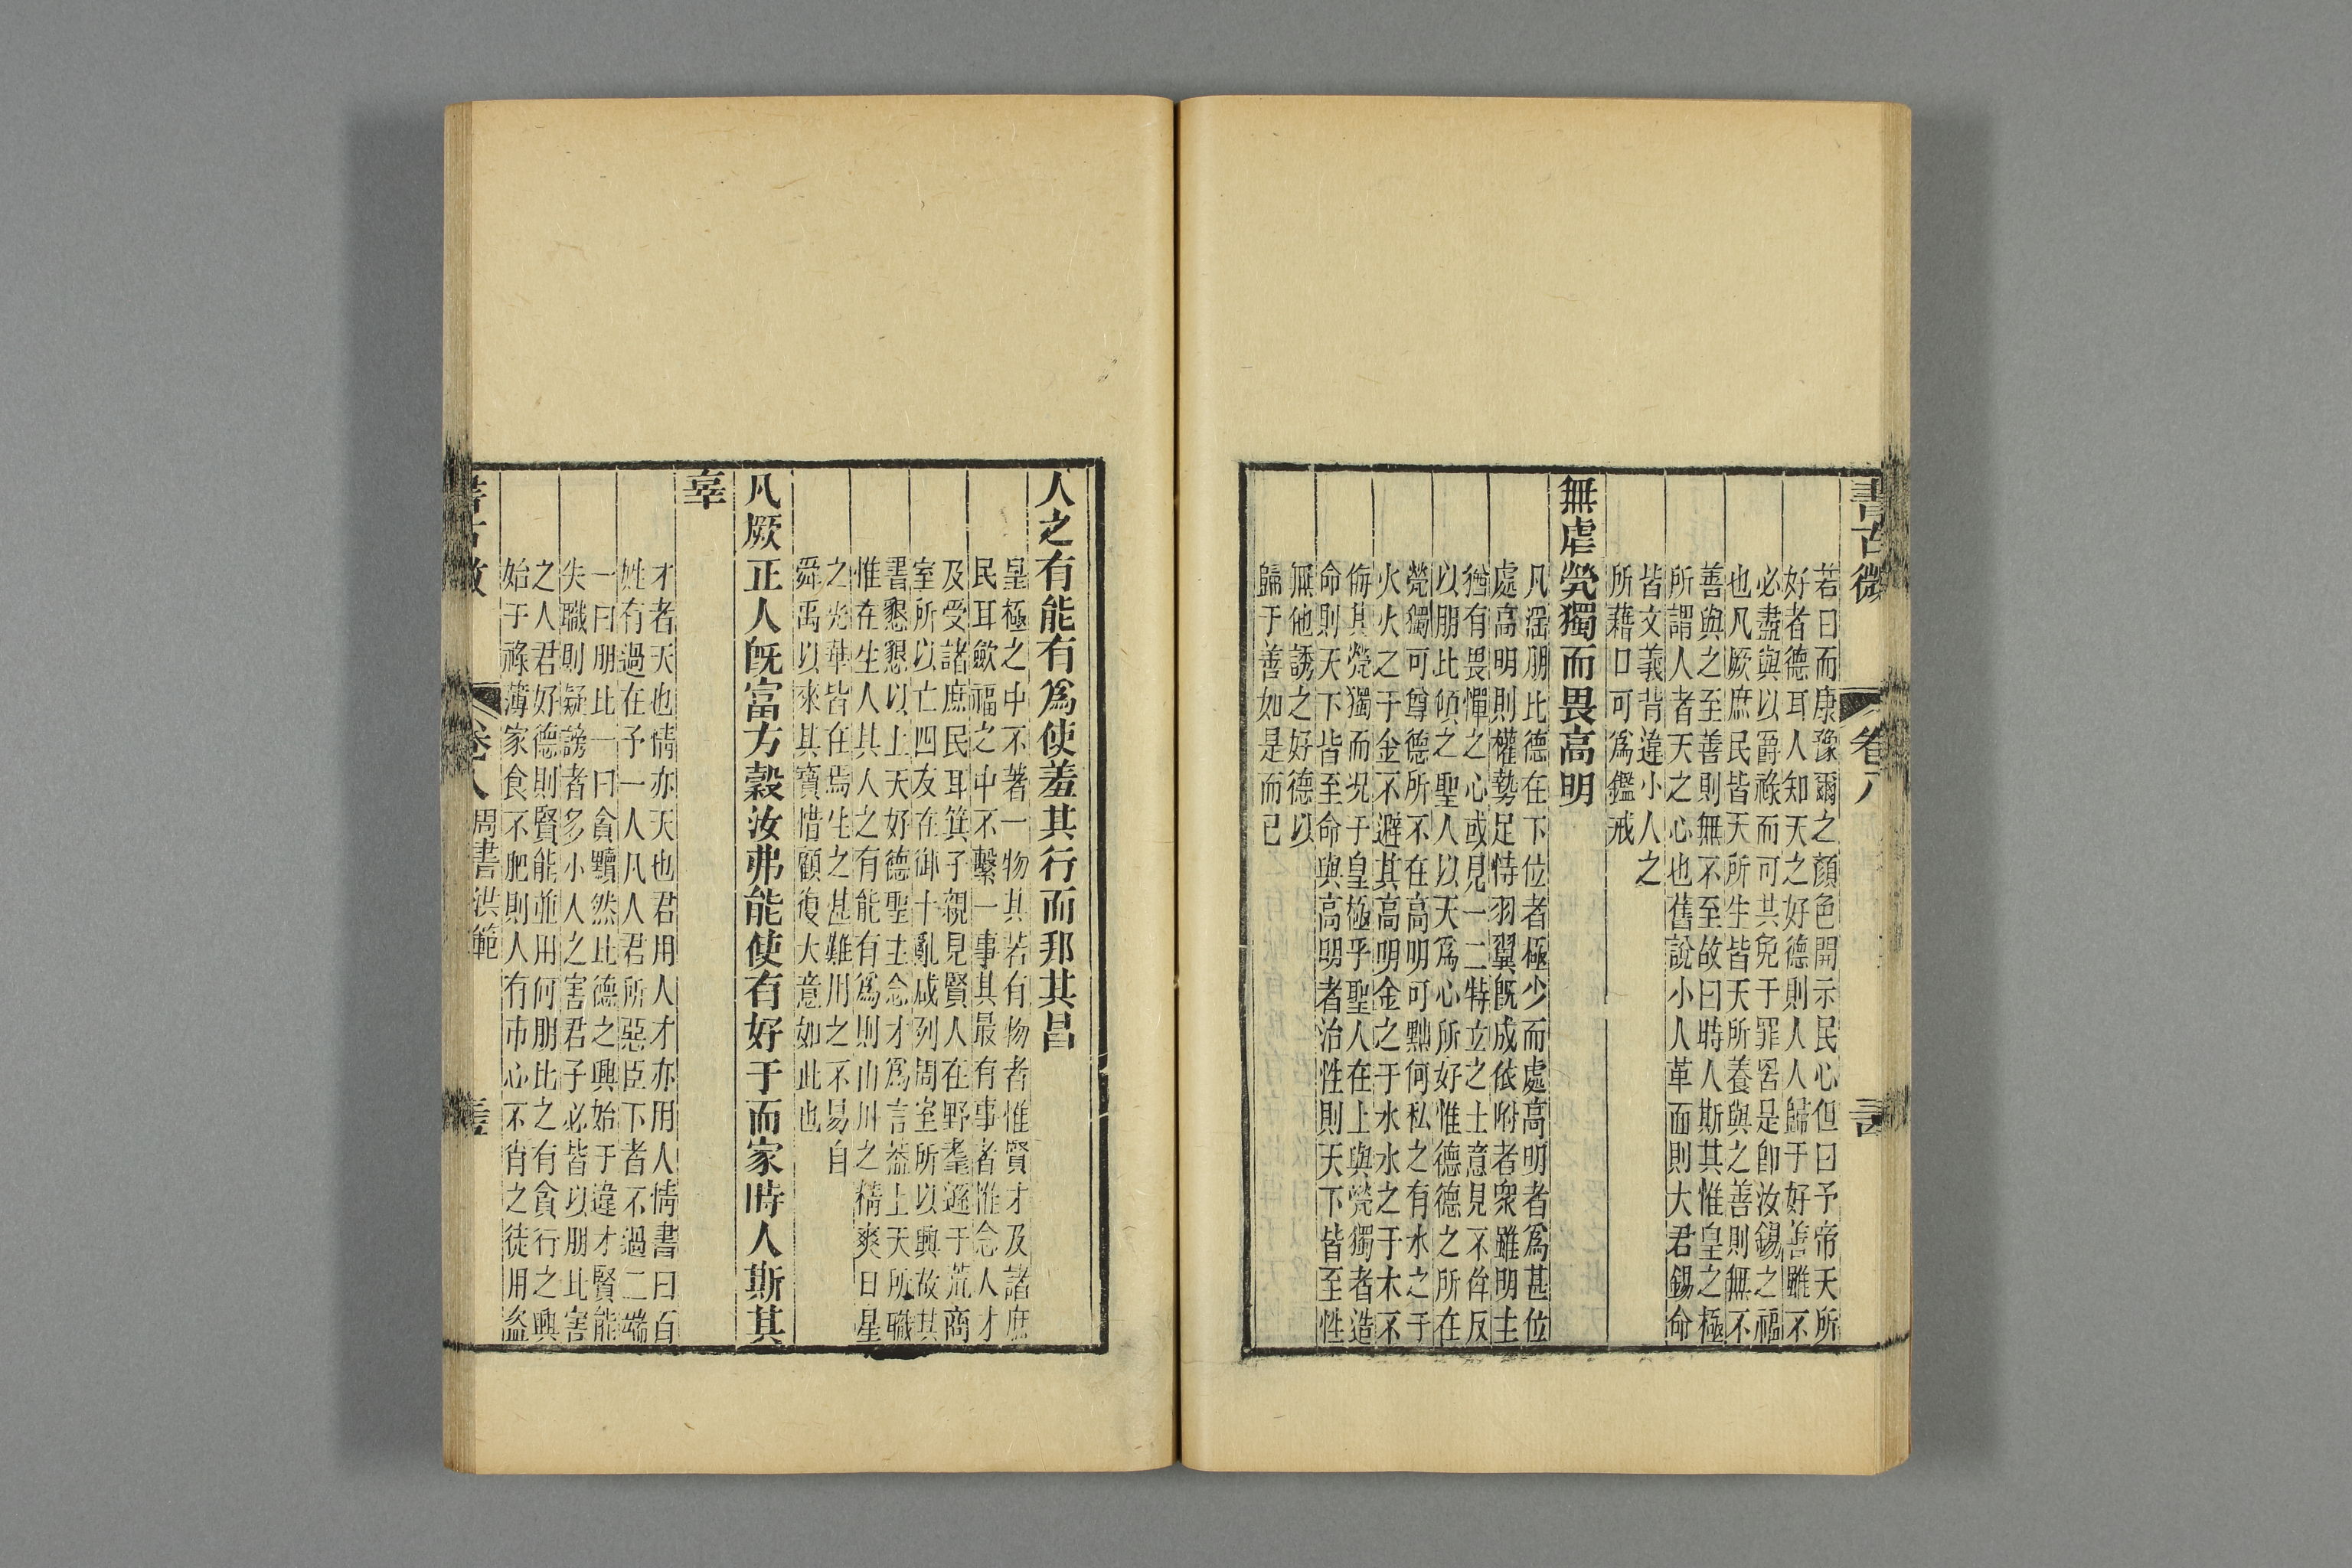 書古微 卷八
若曰而康豫爾之顏色開示民心但曰予帝天所
好者德耳人知天之好德則人人歸于好善雖不
必盡與以爵祿而可其免于罪罟是卽汝錫之福
也凡厥庶民皆天所生皆天所養與之善則無不
善與之至善則無不至故曰時人斯其惟皇之極
所謂人者天之心也舊說小人革面則大君錫命
皆文義背違小人之
所藉口可爲鑑戒
無虐煢獨而畏高明
凡淫朋比德在下位者極少而處高明者爲甚位
處高明則權勢足恃羽翼旣成依附者衆雖明主
猶有畏憚之心或見一二特立之士意見不侔反
以朋比傾之聖人以天爲心所好惟德德之所在
煢獨可尊德所不在高明可黜何私之有水之于
火火之于金不避其高明金之于水水之于木不
侮其煢獨而况于皇極乎聖人在上與煢獨者造
命則天下皆至命與高明者治性則天下皆至性
無他誘之好德以
歸于善如是而已
人之有能有爲使羞其行而邦其昌
皇極之中不著一物其若有物者惟賢才及諸庶
民耳歛福之中不繫一事其最有事者惟念人才
及受諸庶民耳箕子親見賢人在野耄遜于荒商
室所以亡四友在御十亂咸列周室所以興故其
書懇懇以上天好德聖主念才爲言葢上天所職
惟在生人其人之有能有爲則山川之精爽日星
之光華皆在焉生之甚難用之不易自
舜禹以來其寶惜顧復大意如此也
凡厥正人旣富方穀汝弗能使有好于而家時人斯其
辜
才者天也情亦天也君用人才亦用人情書曰百
姓有過在予一人凡人君所惡臣下者不過二端
一曰朋比一曰貪黷然比德之興始于違才賢能
失職則疑謗者多小人之害君子必皆以朋比害
之人君好德則賢能並用何朋比之有貪行之興
始于祿薄家食不肥則人有市心不肖之徒用盜
卷八 周書洪範